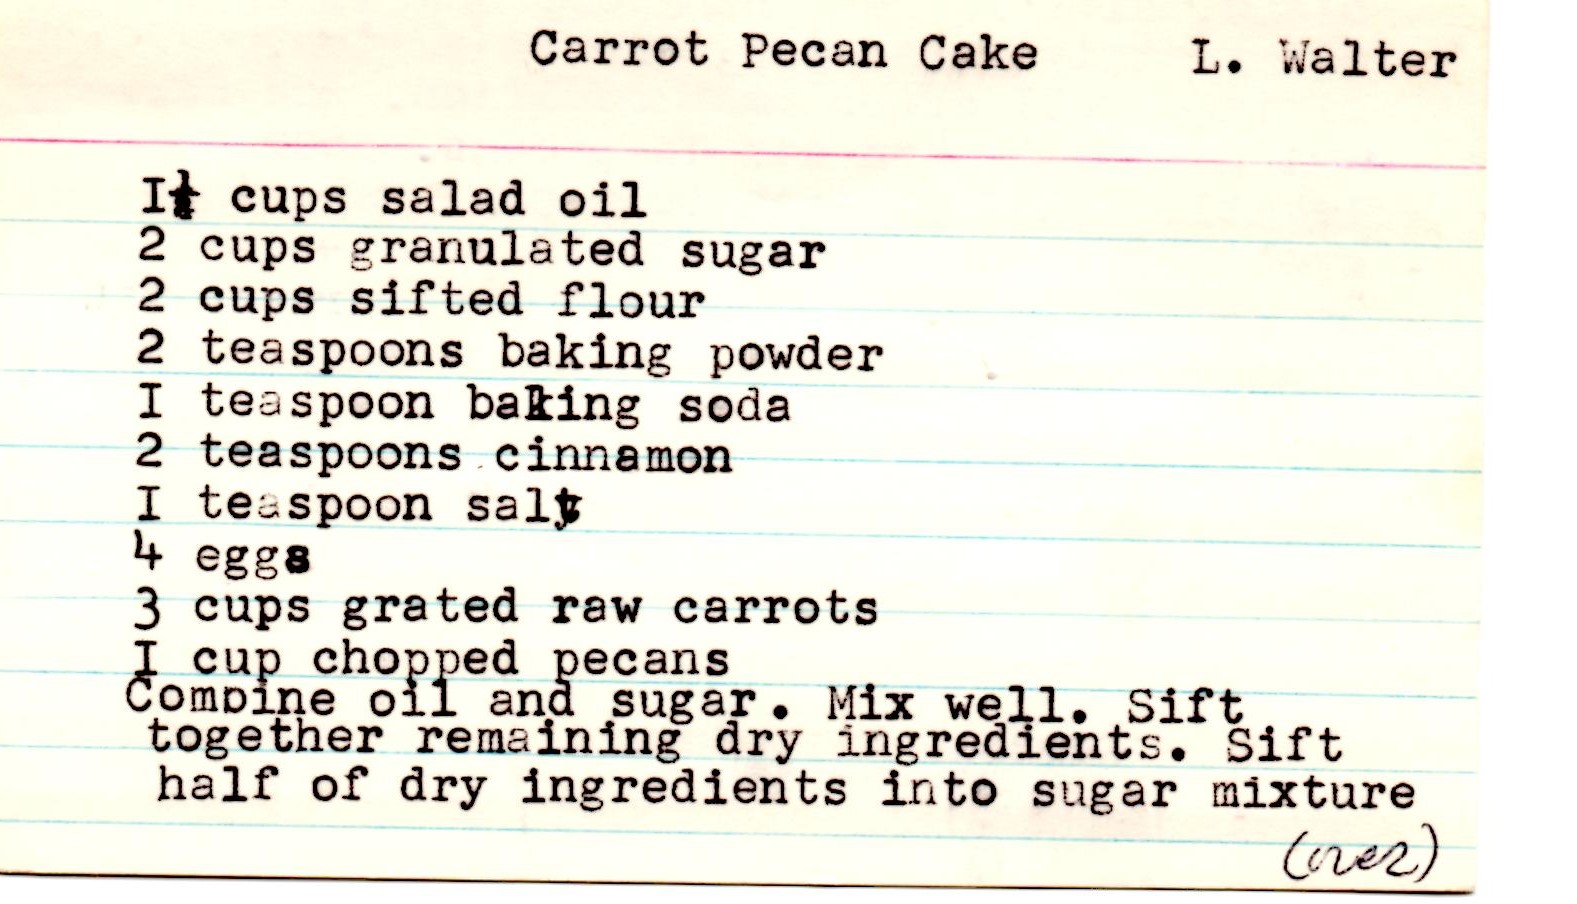 Carrot Pecan Cake L. Walter
cups salad oil
2 cups granulated sugar
2 cups sifted flour
2 teaspoons baking powder
I teaspoon baking soda
2 teaspoons cinnamon
I teaspoon salt
4 eggs
3 cups grated raw carrots
I cup chopped pecans
Combine oil and sugar. Mix well. Sift
together remaining dry ingredients. Sift
half of dry ingredients into sugar mixture
(over)